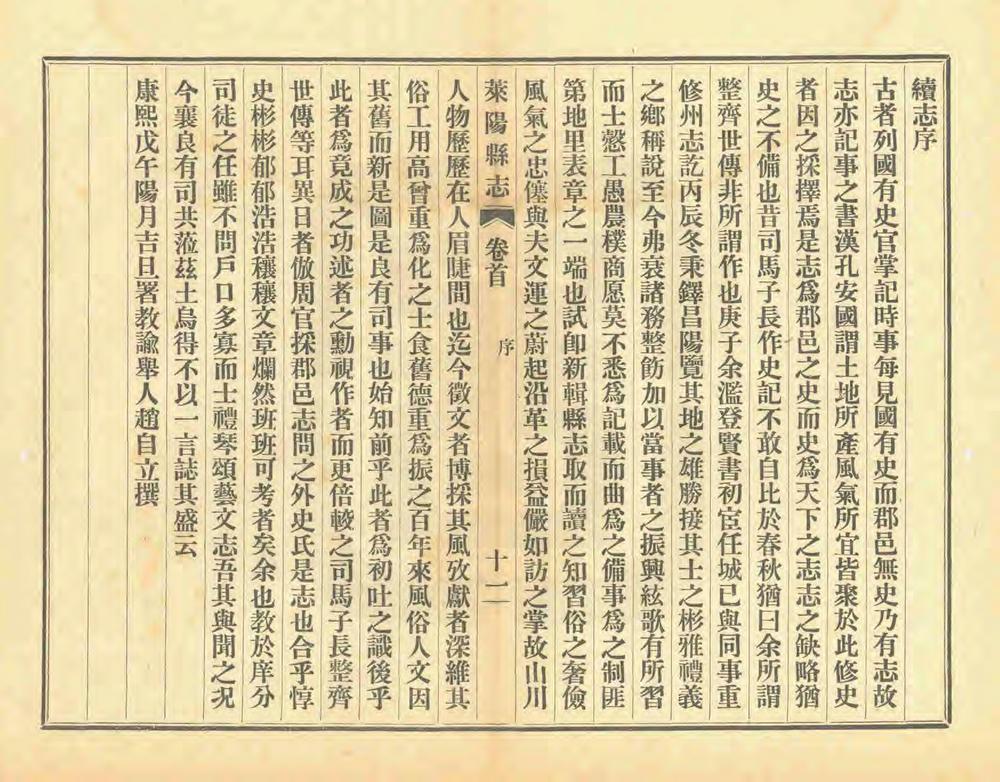 續志序
古者列國有史官掌記時事每見國有史而郡邑無史乃有志故
志亦記事之書漢孔安國謂土地所產風氣所宜皆聚於此修史
者因之採擇焉是志爲郡邑之史而史爲天下之志志之缺略猶
史之不備也昔司馬子長作史記不敢自比於春秋猶曰余所謂
整齊世傳非所謂作也庚子余濫登賢書初宦任城已與同事重
修州志訖丙辰冬秉鐸昌陽覽其地之雄勝接其士之彬雅禮義
之鄉稱說至今弗衰諸務整飭加以當事者之振興絃歌有所習
而士愨工愚農樸商愿莫不悉爲記載而曲爲之備事爲之制匪
第地里表章之一端也試卽新輯縣志取而讀之知習俗之奢儉
風氣之忠僿與夫文運之蔚起沿革之損益儼如訪之掌故山川
萊陽縣志 卷首 序 十二
人物歷歷在人眉睫間也迄今徵文者博採其風攷獻者深維其
俗工用高曾重爲化之士食舊德重爲振之百年來風俗人文因
其舊而新是圖是良有司事也始知前乎此者爲初吐之識後乎
此者爲竟成之功述者之勳視作者而更倍較之司馬子長整齊
世傳等耳異日者倣周官採郡邑志問之外史氏是志也合乎惇
史彬彬郁郁浩浩穰穰文章爛然班班可考者矣余也教於庠分
司徒之任雖不問戶口多寡而士禮琴頌藝文志吾其與聞之况
今襄良有司共蒞茲土烏得不以一言誌其盛云
康熙戊午陽月吉旦署教諭舉人趙自立撰